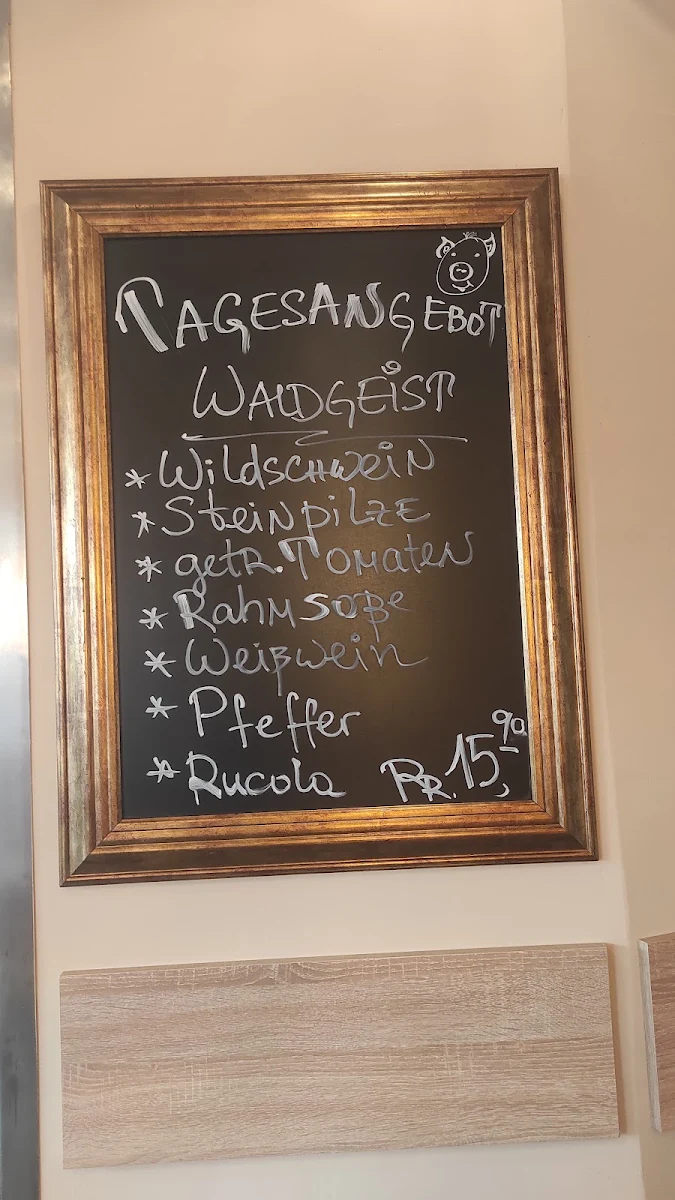 TAGESANGEBOT
WALDGEIST
* Wildschwein
* Steinpilze
* getr. Tomaten
* Rahmsoße
* Weißwein
* Pfeffer
* Rucola PR. 15,90